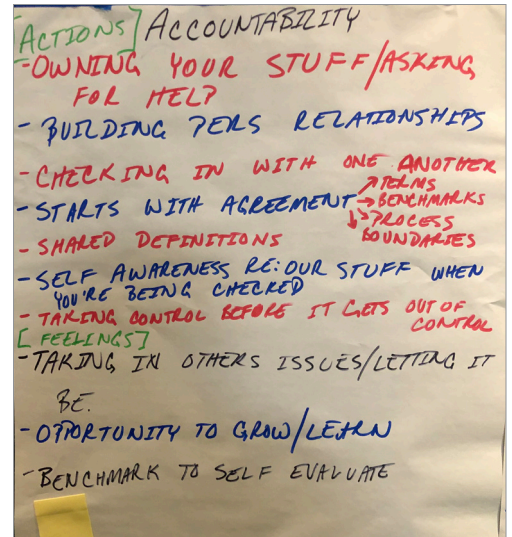 [ACTIONS] ACCOUNTABILITY
-OWNING YOUR STUFF/ASKING
FOR HELP
- BUILDING PERS RELATIONSHIPS
- CHECKING IN WITH ONE ANOTHER
- STARTS WITH AGREEMENT →TERMS
→BENCHMARKS
→PROCESS
↓BOUNDARIES
- SHARED DEFINITIONS
- SELF AWARENESS RE: OUR STUFF WHEN
YOU'RE BEING CHECKED
- TAKING CONTROL BEFORE IT GETS OUT OF
CONTROL
[FEELINGS]
-TAKING IN OTHERS ISSUES/LETTING IT
BE.
- OPPORTUNITY TO GROW/LEARN
- BENCHMARK TO SELF EVALUATE